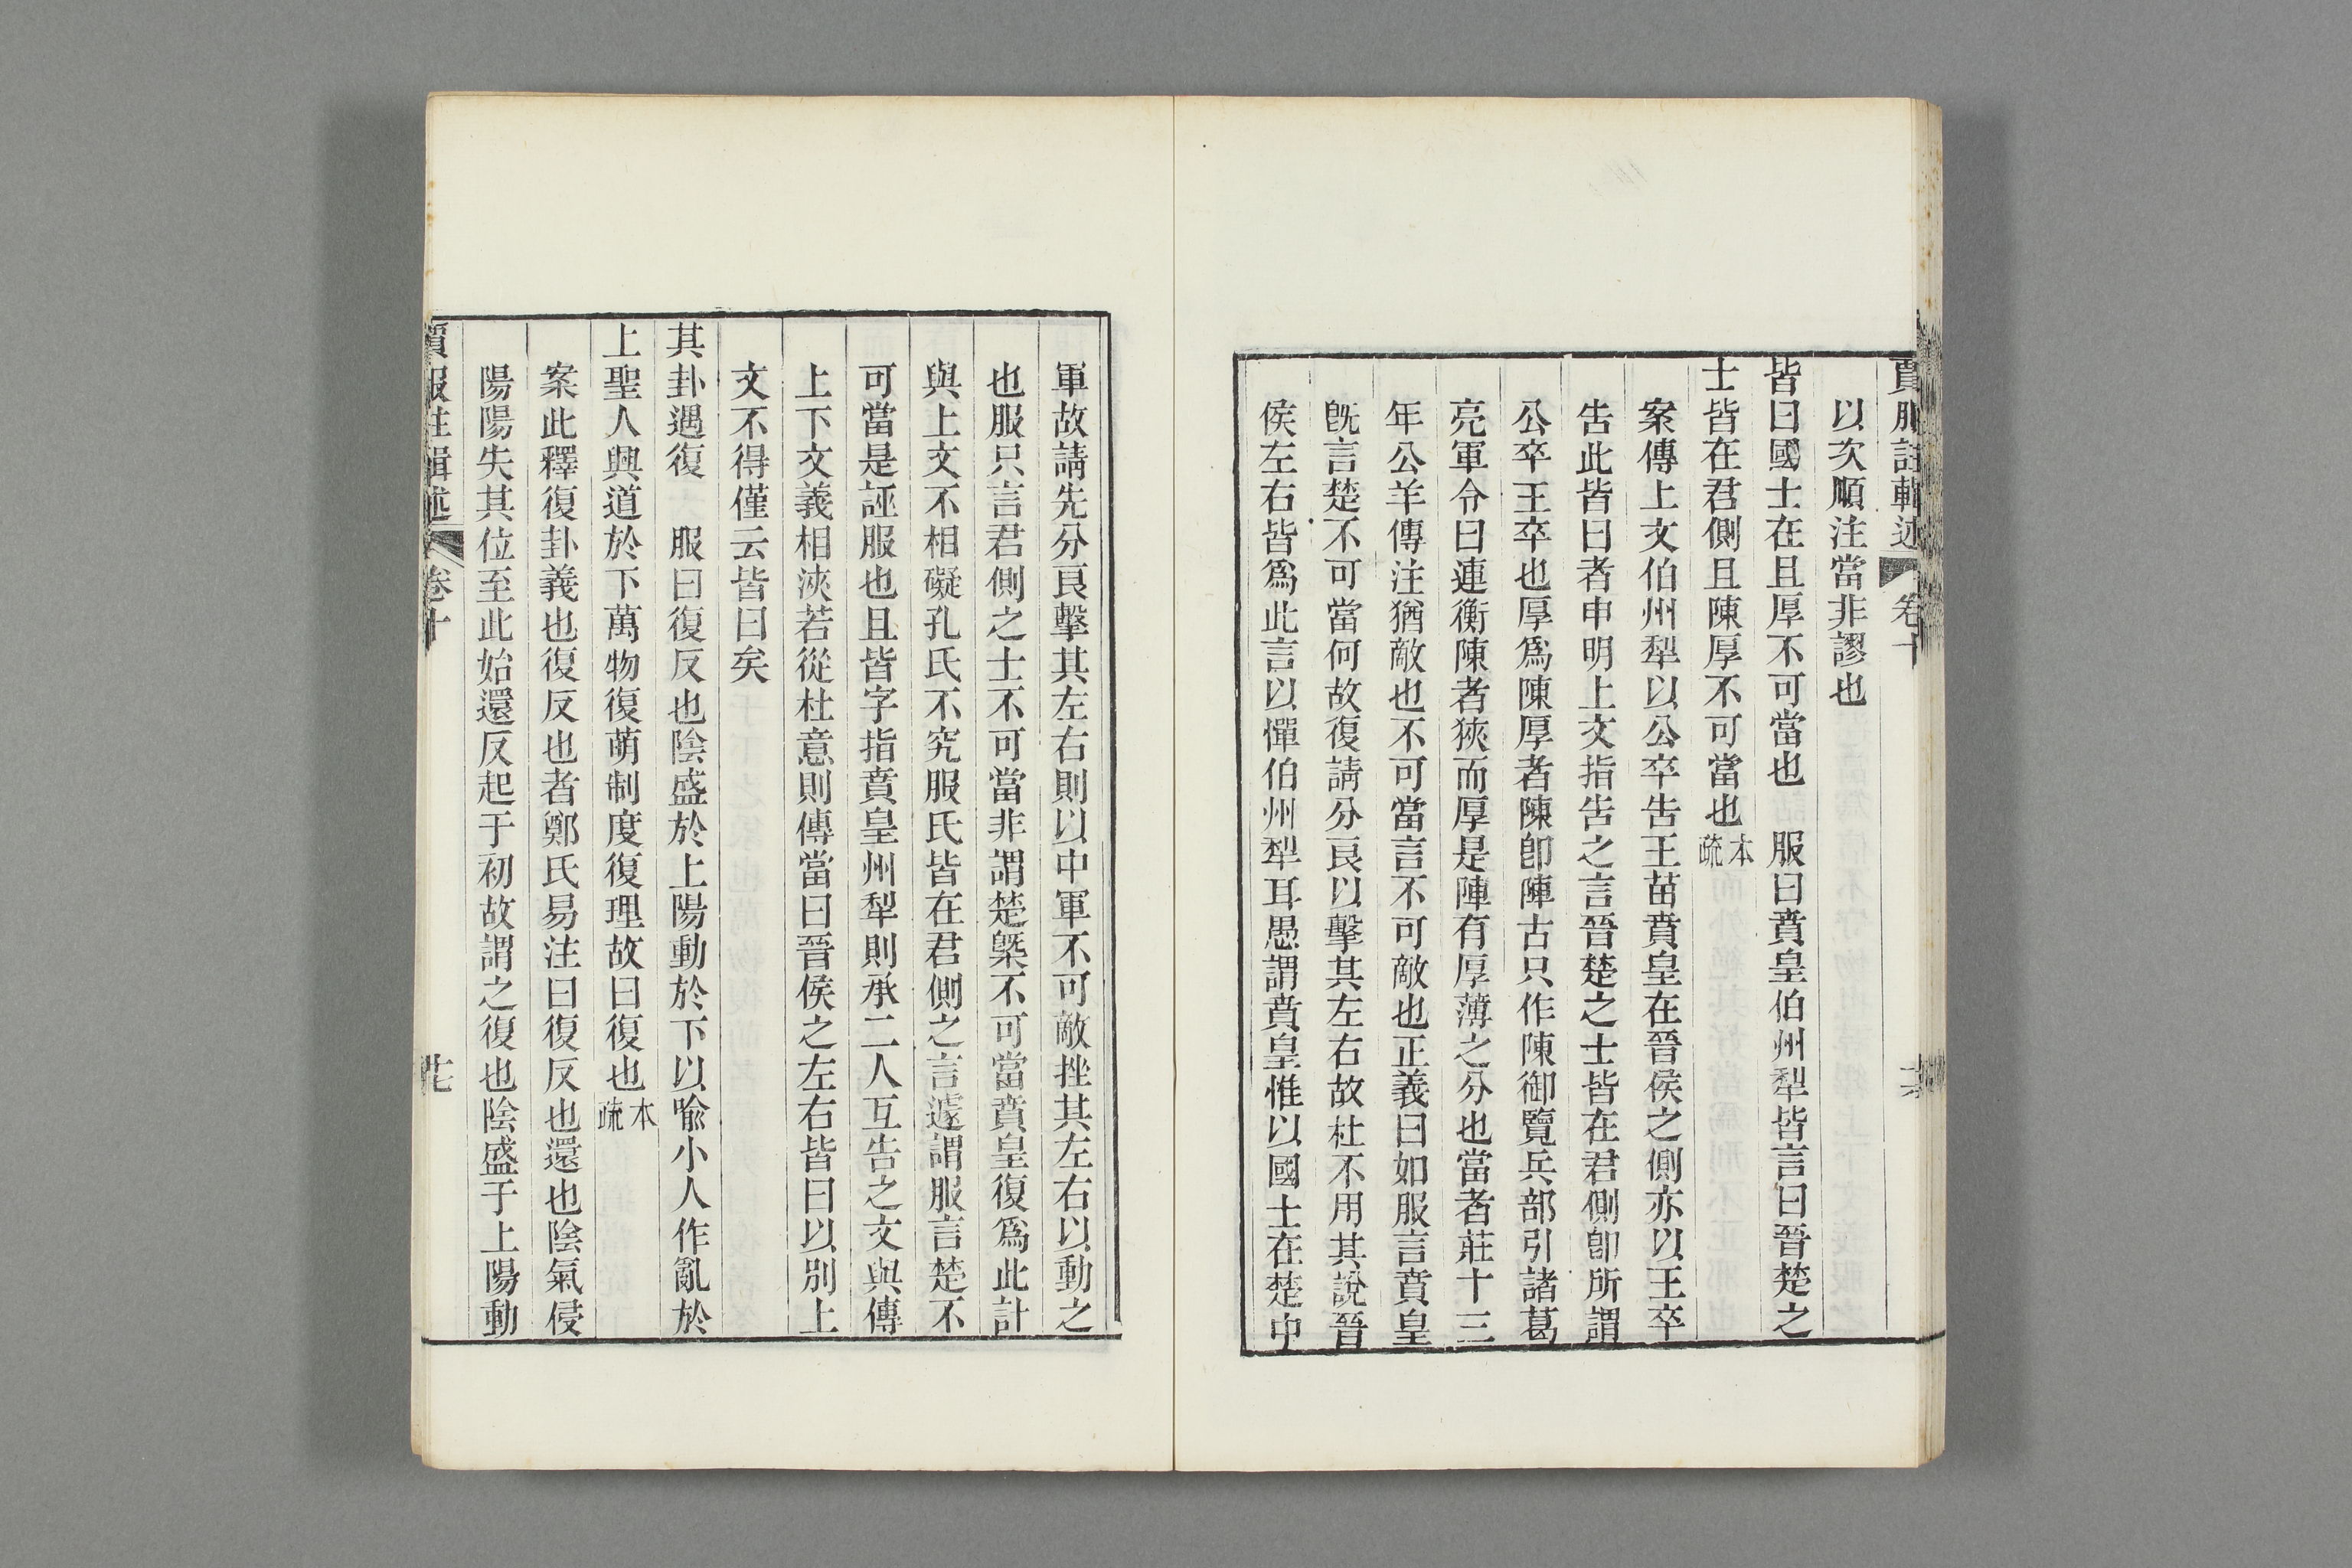 賈服註輯述 卷十
以次順注當非謬也
皆曰國士在且厚不可當也 服曰賁皇伯州犁皆言曰晉楚之
士皆在君側且陳厚不可當也本疏
案傳上文伯州犁以公卒告王苗賁皇在晉侯之側亦以王卒
告此皆曰者申明上文指告之言晉楚之士皆在君側卽所謂
公卒王卒也厚爲陳厚者陳卽陣古只作陳御覽兵部引諸葛
亮軍令曰連衡陳者狹而厚是陣有厚薄之分也當者莊十三
年公羊傳注猶敵也不可當言不可敵也正義曰如服言賁皇
旣言楚不可當何故復請分良以擊其左右故杜不用其說晉
侯左右皆爲此言以憚伯州犁耳愚謂賁皇惟以國士在楚中
軍故請先分良擊其左右則以中軍不可敵挫其左右以動之
也服只言君側之士不可當非謂楚槩不可當賁皇復爲此計
與上文不相礙孔氏不究服氏皆在君側之言遽謂服言楚不
可當是誣服也且皆字指賁皇州犁則承二人互告之文與傳
上下文義相浹若從杜意則傳當曰晉侯之左右皆曰以別上
文不得僅云皆曰矣
其卦遇復 服曰復反也陰盛於上陽動於下以喻小人作亂於
上聖人興道於下萬物復萌制度復理故曰復也本疏
案此釋復卦義也復反也者鄭氏易注曰復反也還也陰氣侵
陽陽失其位至此始還反起于初故謂之復也陰盛于上陽動
賈服註輯述 卷十 十七